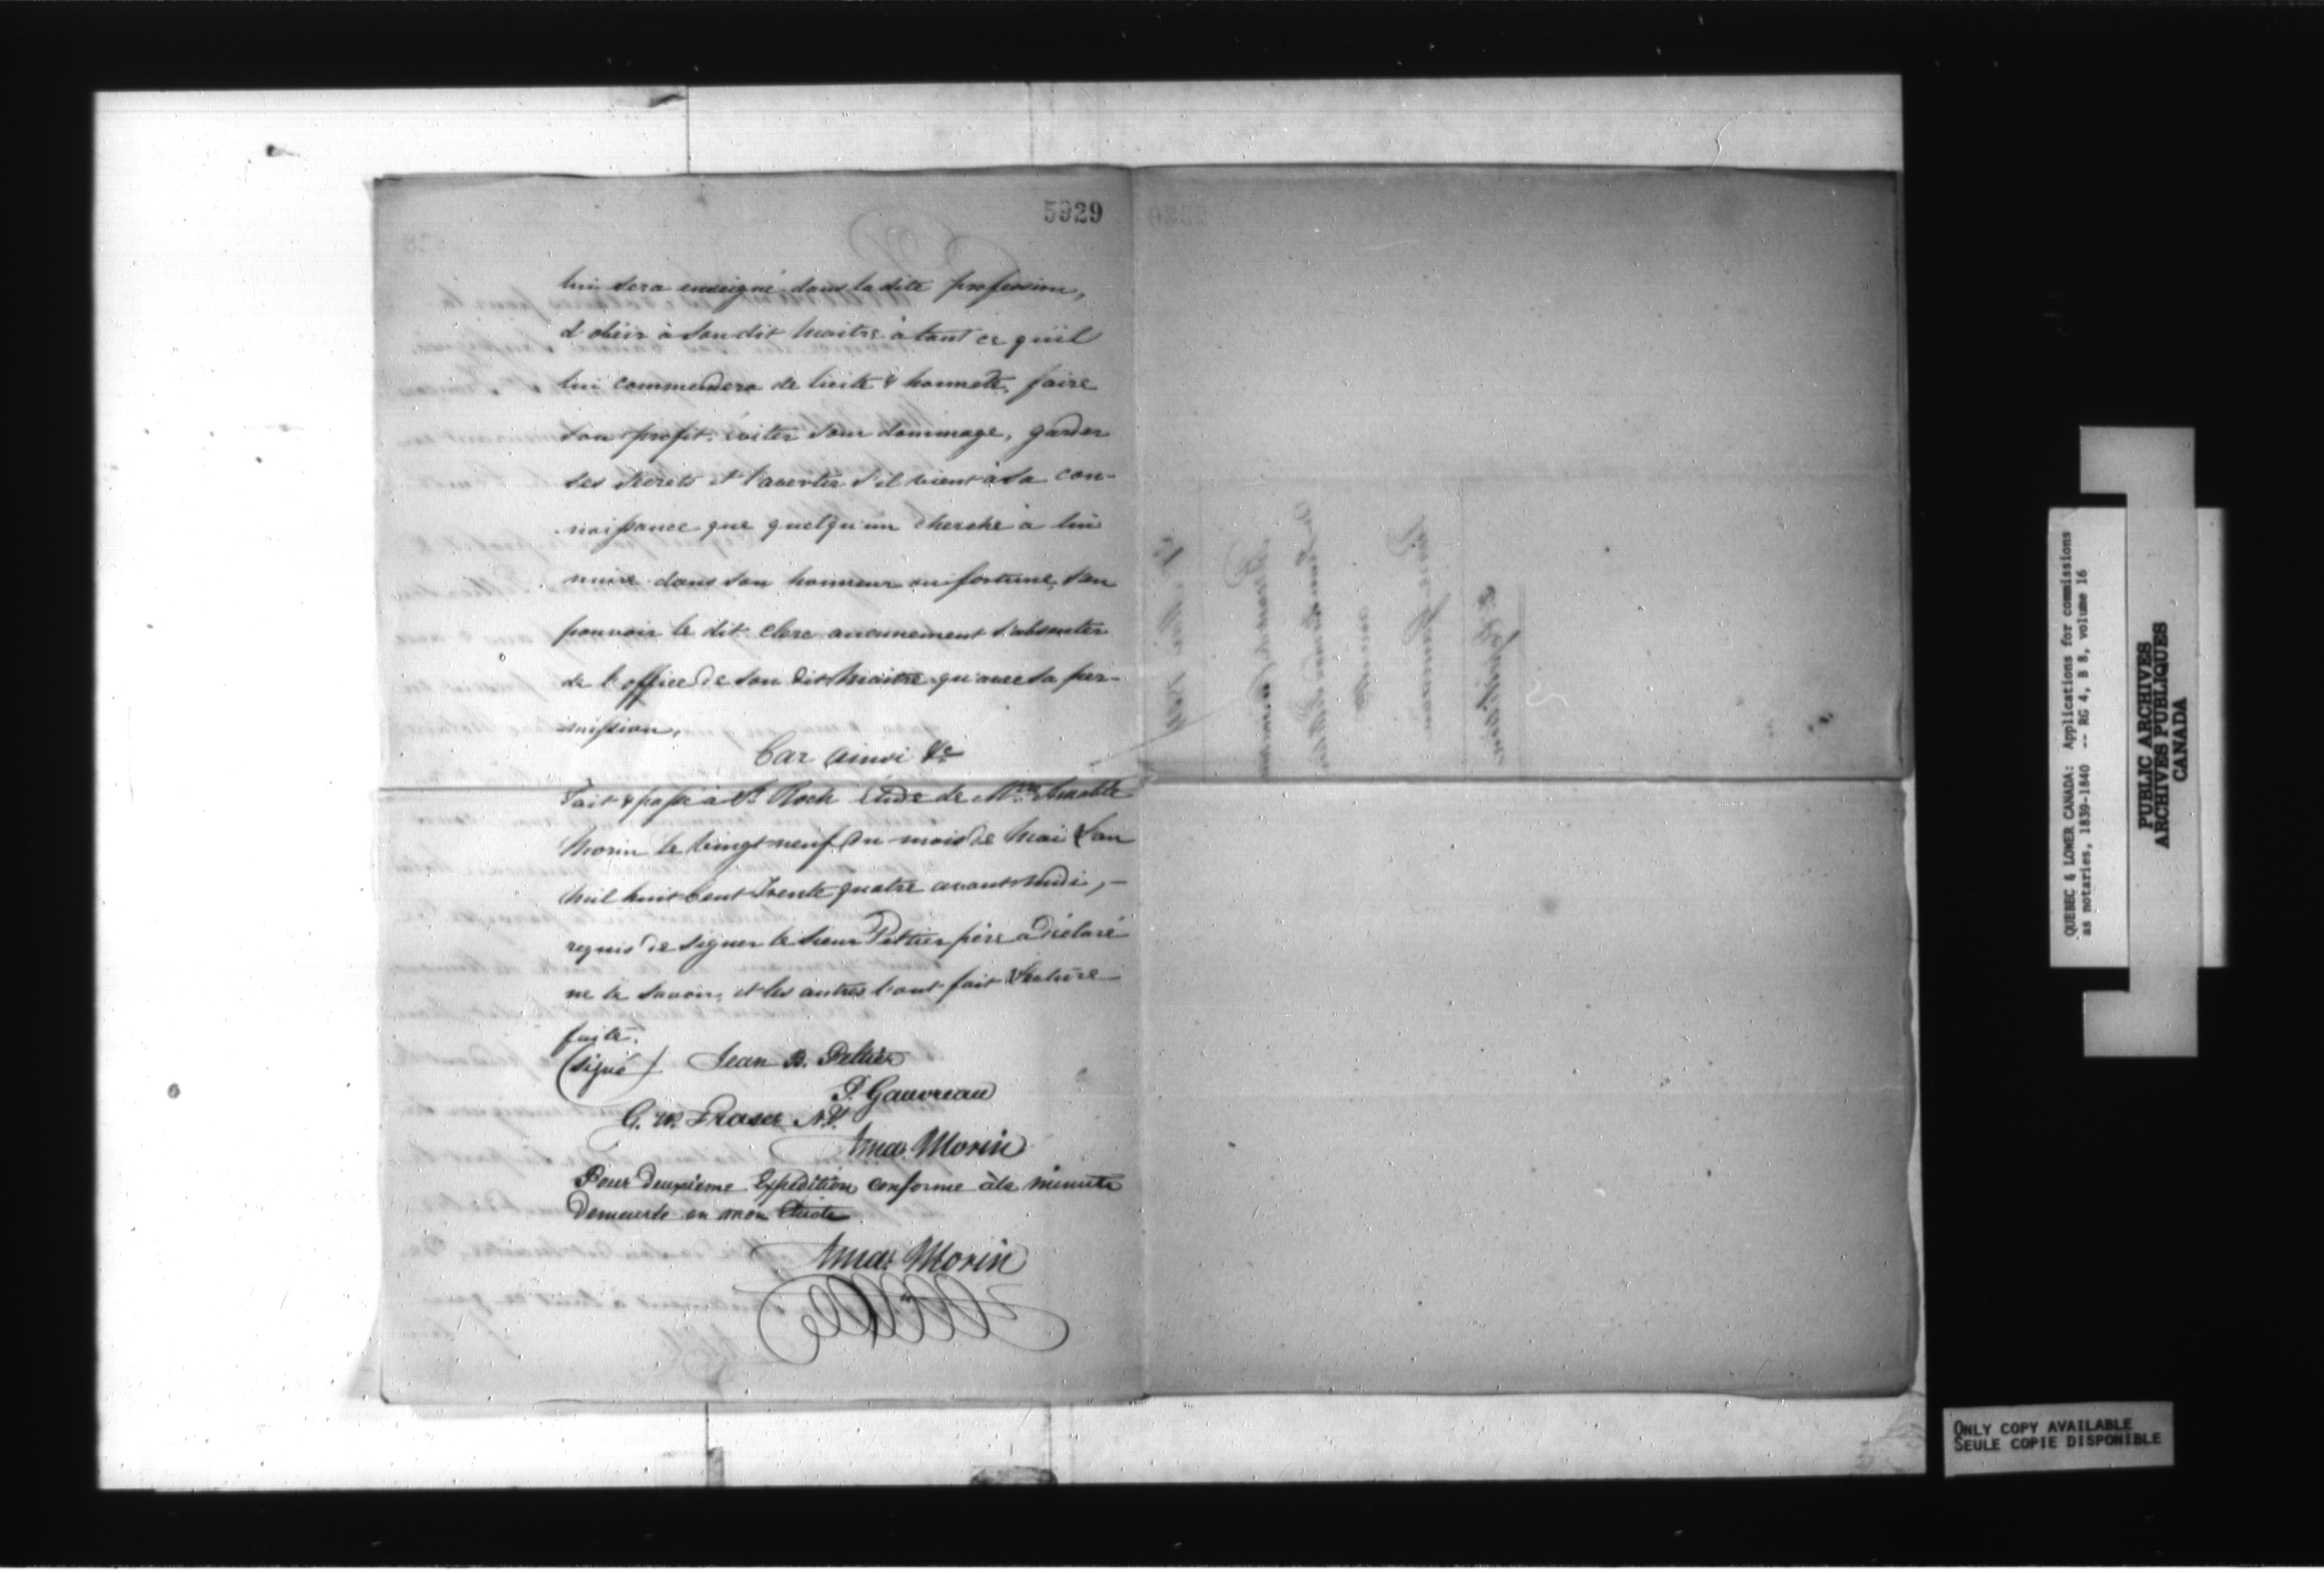 5929
lui sera enseigné dans la dite profession,
d'obéir à son dit Maitre à tout ce qu'il
lui commendera de licite & honnete, faire
son profit, éviter son dommage, garder
ses secrets et l'avertir s'il vient à sa con-
noissance que quelqu'un cherche à lui
nuire dans son honneur ou fortune, sans
pouvoir le dit clerc aucunement s'absenter
de l'office de son dit Maitre qu'avec sa per-
mission,
Car Ainsi &c
Fait & passé à St Roch Etude de Mtre Amable
Morin le vingt neuf du mois de Mai L'an
Mil huit Cent Trente quatre avant Midi, -
requis de signer le Sieur Peltier père a déclaré
ne le savoir, et les autres l'ont fait Lecture
faite.
(signé) Jean B. Peltier
P. Gauvreau
G. W. Fraser N.P.
Ama. Morin
Pour deuxième Expédition conforme à la minute
Demeurée en mon Etude
Ama. Morin
QUEBEC & LOWER CANADA: Applications for commissions
as notaries, 1839-1840 -- RG 4, B 8, volume 16
PUBLIC ARCHIVES
ARCHIVES PUBLIQUES
CANADA
ONLY COPY AVAILABLE
SEULE COPIE DISPONIBLE